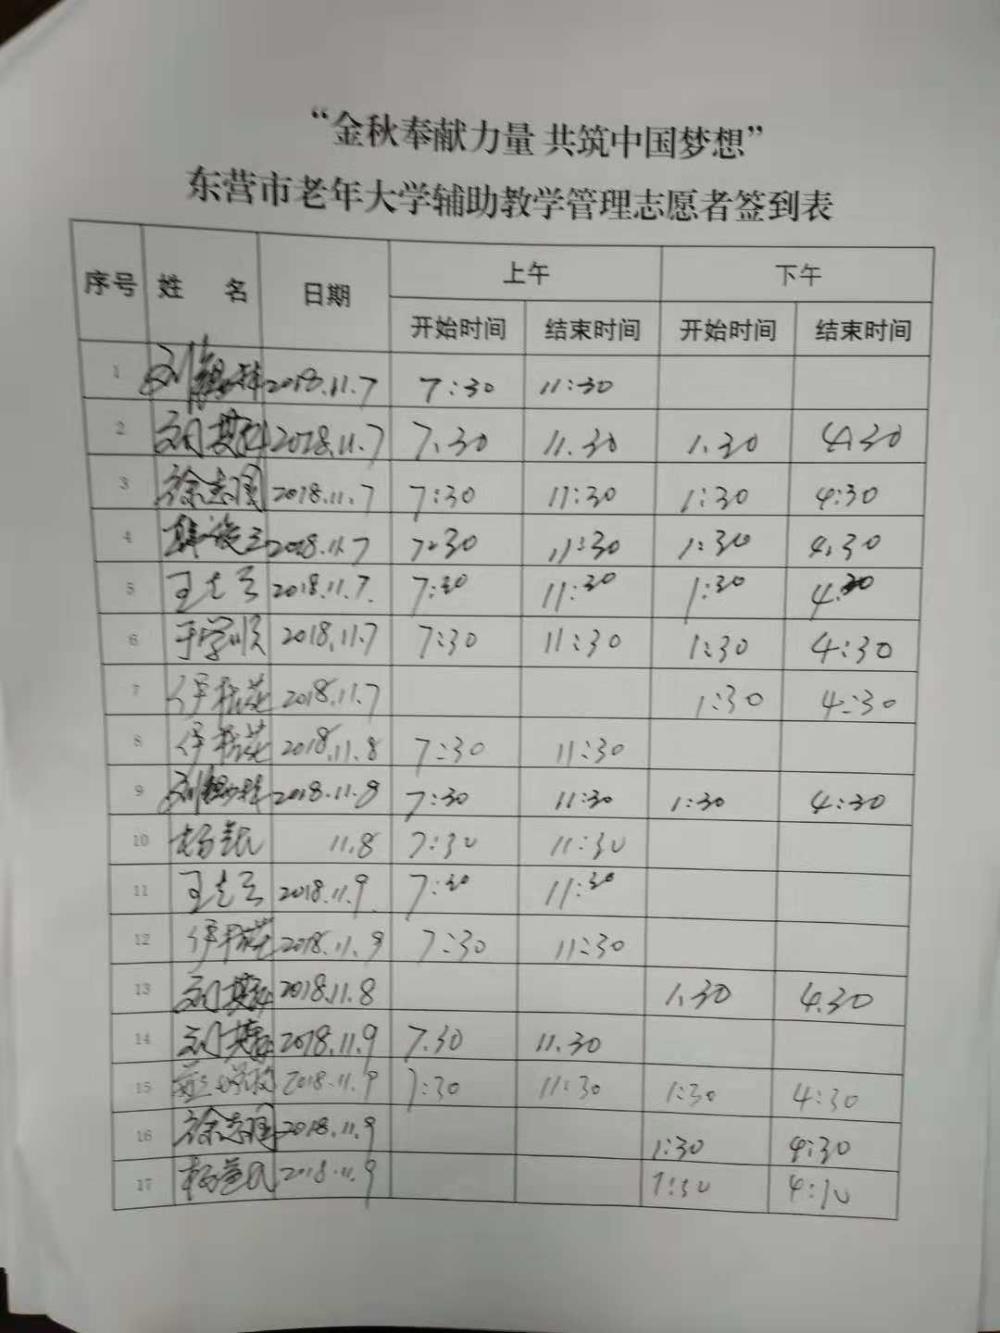 “金秋奉献力量 共筑中国梦想”
东营市老年大学辅助教学管理志愿者签到表
序号 姓 名 日期 上午 下午
开始时间 结束时间 开始时间 结束时间
1 2018.11.7 7:30 11:30
2 2018.11.7 7.30 11.30 1.30 4.30
3 2018.11.7 7:30 11:30 1:30 4:30
4 2018.11.7 7:30 11:30 1:30 4.30
5 2018.11.7. 7:30 11:30 1:30 4:30
6 于学顺 2018.11.7 7:30 11:30 1:30 4:30
7 2018.11.7 1:30 4:30
8 2018.11.8 7:30 11:30
9 2018.11.8 7:30 11:30 1:30 4:30
10 11.8 7:30 11:30
11 2018.11.9 7:30 11:30
12 2018.11.9 7:30 11:30
13 2018.11.8 1.30 4.30
14 2018.11.9 7.30 11.30
15 2018.11.9 7:30 11:30 1:30 4:30
16 2018.11.9 1:30 4:30
17 2018.11.9 1:30